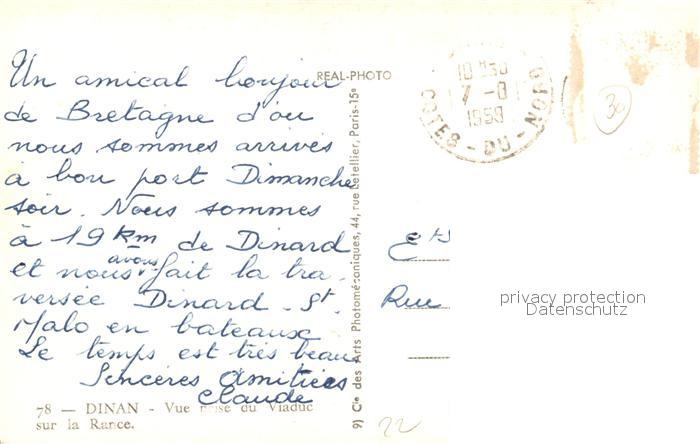 Un amical bonjour
de Bretagne d'ou
nous sommes arrivés
à bon port Dimanche
soir. Nous sommes
à 19 km de Dinard
et nous avons fait la tra-
versée Dinard - St
Malo en bateaux
Le temps est très beau
Sincères Amitiés
Claude
78 — DINAN - Vue prise du Viaduc
sur la Rance.
REAL-PHOTO
9) Cie des Arts Photomécaniques, 44, rue Letellier, Paris-15e
1959
COTES-DU-NORD
30
Ets
Rue
privacy protection
Datenschutz
22